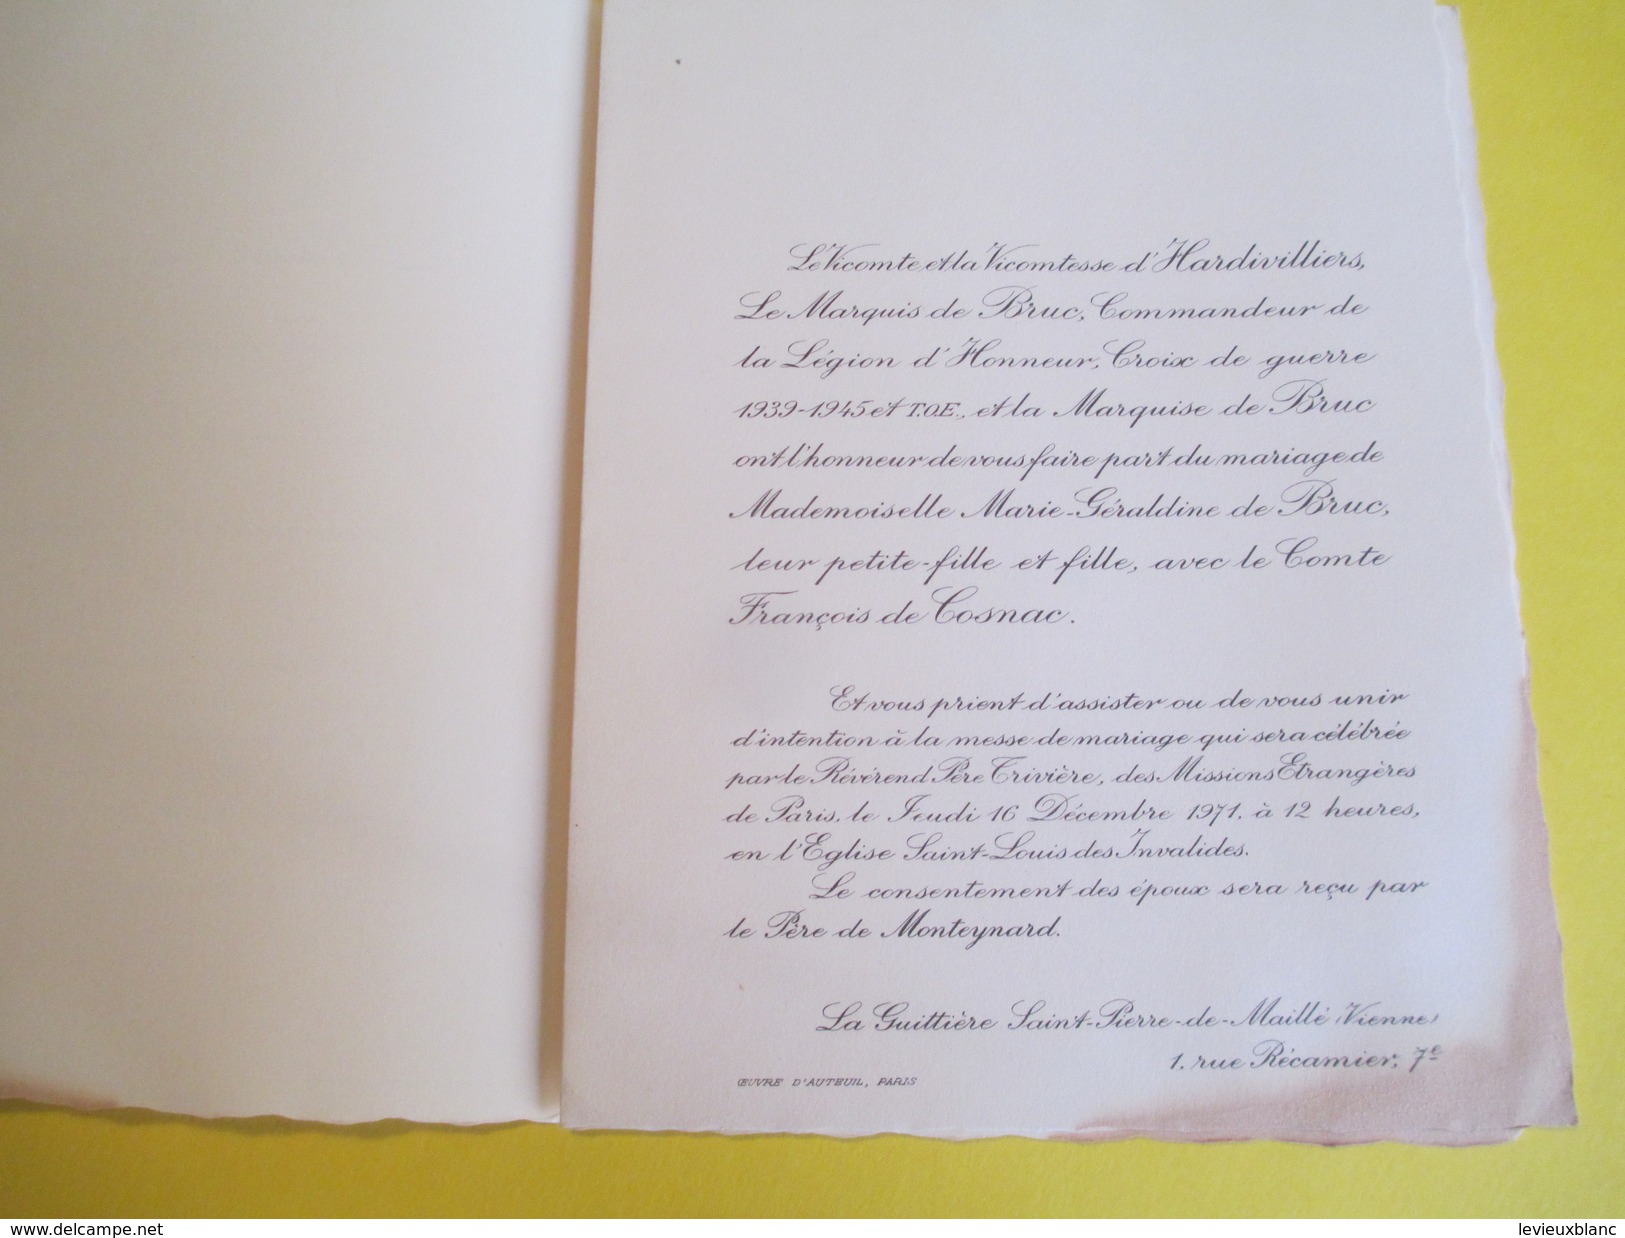 Le Vicomte et la Vicomtesse d'Hardivilliers,
Le Marquis de Bruc, Commandeur de
la Légion d'Honneur, Croix de guerre
1939-1945 et T.O.E., et la Marquise de Bruc
ont l'honneur de vous faire part du mariage de
Mademoiselle Marie-Géraldine de Bruc,
leur petite-fille et fille, avec le Comte
François de Cosnac.
Et vous prient d'assister ou de vous unir
d'intention à la messe de mariage qui sera célébrée
par le Révérend Père Trivière, des Missions Etrangères
de Paris, le Jeudi 16 Décembre 1971, à 12 heures,
en l'Eglise Saint-Louis des Invalides.
Le consentement des époux sera reçu par
le Père de Monteynard.
La Guittière Saint-Pierre-de-Maillé (Vienne)
1, rue Récamier, 7e
ŒUVRE D'AUTEUIL, PARIS
www.delcampe.net
levieuxblanc